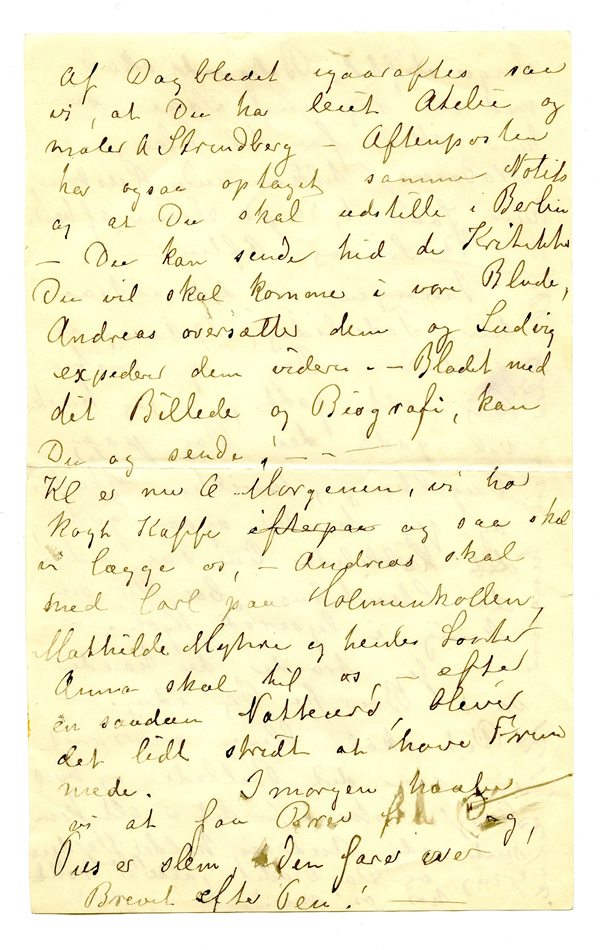 Af Dagbladet igaaraftes saa
vi, at Du har leiet Atelie og
maler A Strindberg – Aftenposten
har ogsaa optaget samme Notits
og at Du skal udstille i Berlin
– Du kan sende hid de Kritikker
Du vil skal komme i vore Blade,
Andreas oversætter dem og Ludvig
expederer dem videre. – Bladet med
dit Billede og Biografi, kan
Du og sende! – – –
Kl er nu 6 Morgenen, vi har
kogt Kaffe efterpaa og saa skal
vi lægge os, – Andreas skal
med Carl paa Holmenkollen, –
Mathilde Myhre og hendes Søster
Anna skal til os – efter
en saadan Nattetur, bliver
det lidt stridt at have Fremmede
mede. I morgen haaber
vi at faa Brev fra Dig,
Pus er slem, den farer over
Brevet efter Pen! –